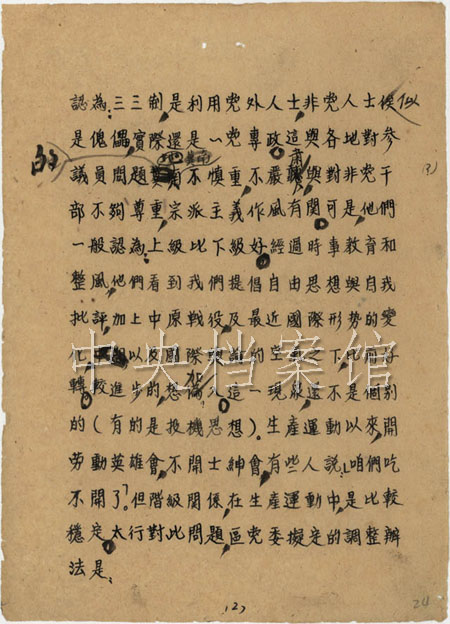 認為:三三制是利用党外人士非党人士僕似
是傀儡實際還是一党專政這與各地對參
的
議員問題
不慎重不嚴肅與對非党干
(?)
部不夠尊重宗派主義作風有関可是他們
一般認為:上級比下級好經過時事教育和
整風他們看到我們提倡自由思想與自我
批評加上中原戰役及最近國際形势的变
化
以及國際
之下比前好
轉較進步的想
這一現象還不是個别
的(有的是投機思想)。生產運動以來開
劳動英雄會不開士紳會有些人說:咱們吃
不開了?但階級関係在生產運動中是比較
穩定太行對此問題區党委擬定的調整辦
法是:
中央档案馆
(2)
24